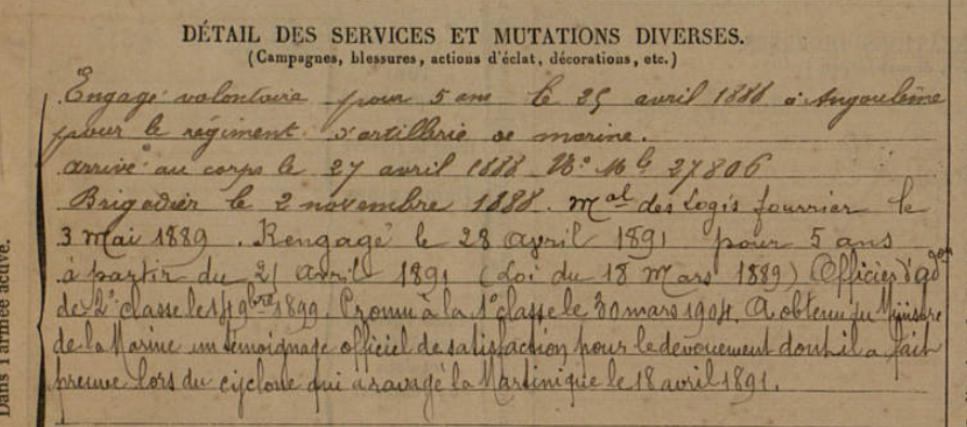 DÉTAIL DES SERVICES ET MUTATIONS DIVERSES.
(Campagnes, blessures, actions d'éclat, décorations, etc.)
Engagé volontaire pour 5 ans le 25 avril 1888 à Angoulême
pour le régiment d'artillerie de marine.
arrivé au corps le 27 avril 1888 N° Mle 27806
Brigadier le 2 novembre 1888. Mal des Logis fourrier le
3 Mai 1889. Rengagé le 28 avril 1891 pour 5 ans
à partir du 25 avril 1891 (Loi du 18 Mars 1889) Officier d'adon
de 2e classe le 9bre 1899. Promu à la 1e classe le 30 mars 1904. A obtenu du Ministre
de la Marine un témoignage officiel de satisfaction pour le dévouement dont il a fait
preuve lors du cyclone qui a ravagé la Martinique le 18 avril 1891.
Dans l'armée active.